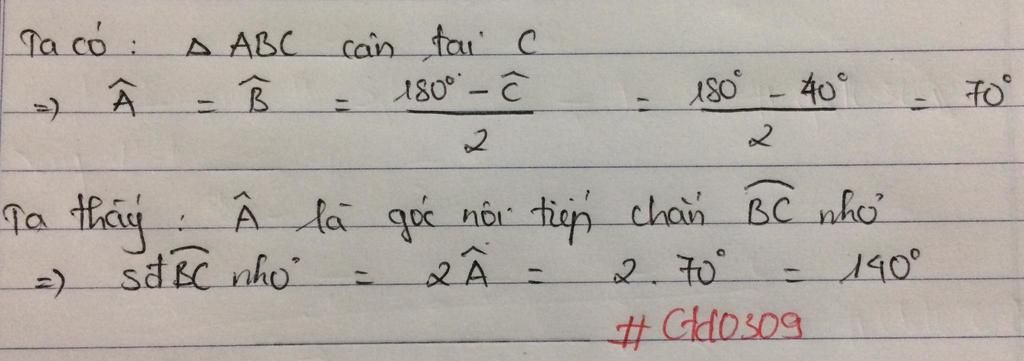 Ta có : Δ ABC cân tại C
=> Â = B̂ = (180° - Ĉ)/2 = (180° - 40°)/2 = 70°
Ta thấy : Â là góc nội tiếp chắn B͡C nhỏ
=> sđ B͡C nhỏ = 2Â = 2 . 70° = 140°
# Ctd0309